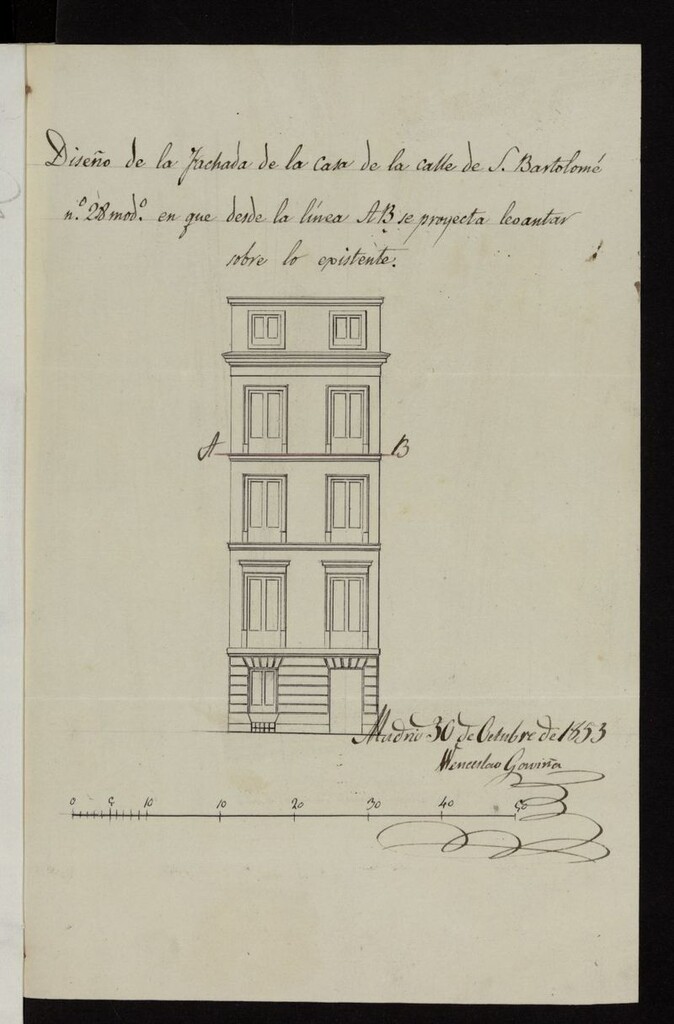 Diseño de la Fachada de la casa de la calle de S. Bartolomé
n.º 28 mod.º en que desde la línea AB se proyecta levantar
sobre lo existente.
A B
Madrid 30 de Octubre de 1853
Wenceslao Gaviña
0 5 10 10 20 30 40 50